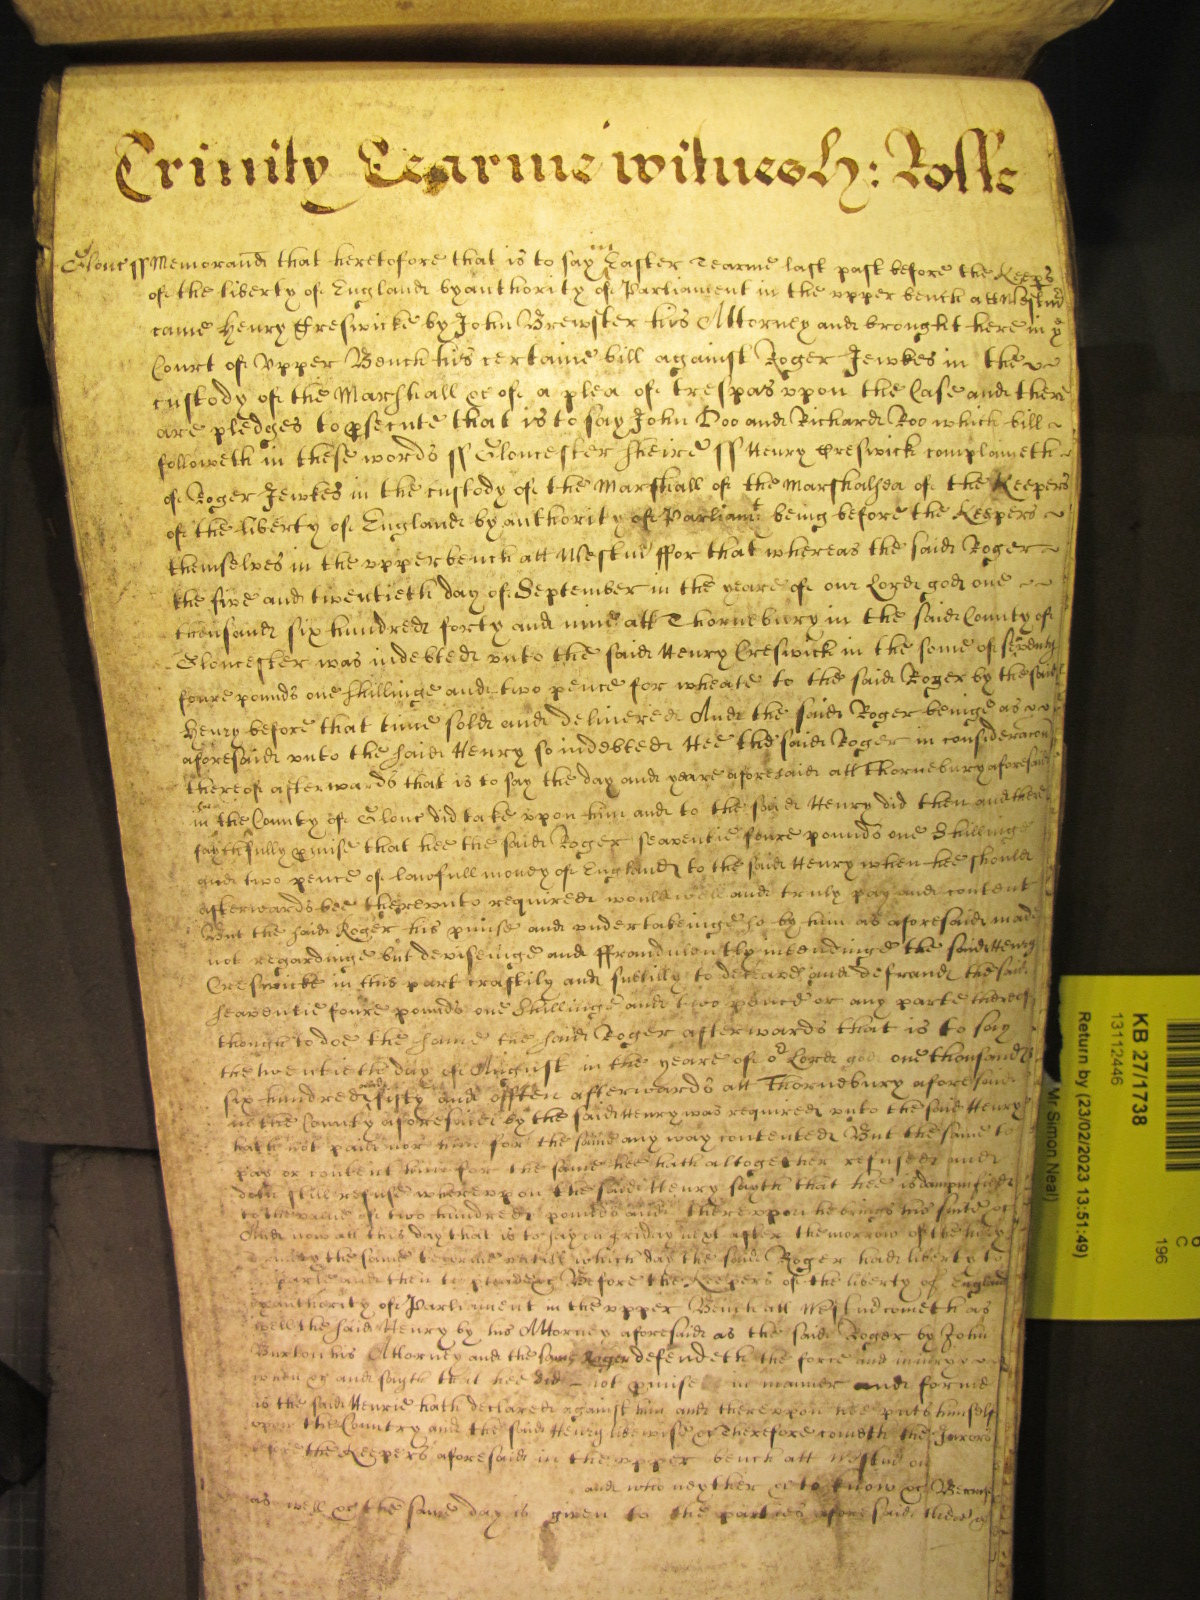 Trinity Tearme witnes H: Rolle
Glouc ss Memorand that heretofore that is to say in Easter Tearme last past before the Keeps
of the liberty of England by authority of Parliament in the upper bench att Westmr
came Henry Creswicke by John Brewster his Attorney and brought here in ye
Court of Upper Bench his certaine bill against Roger Jewkes in the
custody of the Marshall &c of a plea of trespas upon the Case and there
are pledges to psecute that is to say John Doo and Richard Roo which bill
followeth in these words ss Gloucester sheire ss Henry Creswick complaineth
of Roger Jewkes in the custody of the Marshall of the Marshalsea of the Keepers
of the liberty of England by authority of Parliamt being before the Keepers
themselves in the upper bench att Westm ffor that whereas the said Roger
the five and twentieth day of September in the yeare of our Lord god one
thousand six hundred forty and nine att Thornebury in the said County of
Gloucester was indebted unto the said Henry Creswick in the some of seventy
foure pounds one shillinge and two pence for wheate to the said Roger by the said
Henry before that time sold and delivered And the said Roger beinge as
aforesaid unto the said Henry so indebted Hee the said Roger in consideracon
thereof afterwards that is to say the day and yeare aforesaid att Thornebury aforesaid
in the County of Glouc did take upon him and to the said Henry did then and there
faythfully pmise that hee the said Roger seaventie foure pounds one Shillinge
and two pence of lawfull money of England to the said Henry when hee should
afterwards bee thereunto required would well and truly pay and content
But the said Roger his pmise and undertakeinge so by him as aforesaid made
not regardinge but deviseinge and ffraudulently intendinge the said Henry
Creswicke in this part craftily and suttilly to deceave and defraud the said
seaventie foure pounds one Shillinge and two pence or any parte thereof
though to doe the same the said Roger afterwards that is to say
the twentieth day of August in the yeare of or Lord god one thousand
six hundred and fifty and often afterwards att Thornebury aforesaid
in the County aforesaid by the said Henry was required unto the said Henry
hath not paid nor him for the same any way contented But the same to
pay or content him for the same hee hath altogether refused and
doth still refuse whereupon the said Henry sayth that hee is dampnified
to the value of two hundred pounds and thereupon he brings his suite &c
And now att this day that is to say on Friday next after the morrow of the holy
Trinity the same tearme untill which day the said Roger had liberty to
imparle and then to pleade &c Before the Keepers of the liberty of England
by authority of Parliament in the upper Bench att Westm cometh as
well the said Henry by his Attorney aforesaid as the said Roger by John
Burton his Attorney and the same Roger defendeth the force and iniury
when &c and sayth that hee did not pmise in manner and forme
as the said Henrie hath declared against him and thereupon hee puts himself
upon the Country and the said Henry likewise &c Therefore cometh the Jurors
before the Keepers aforesaid in the upper bench att Westm on
and who neyther &c to know &c Because
as well &c the same day is given to the parties aforesaid there &c
KB 27/1738
13112446
Return by (23/02/2023 13:51:49)
Mr Simon Neal)
C
196